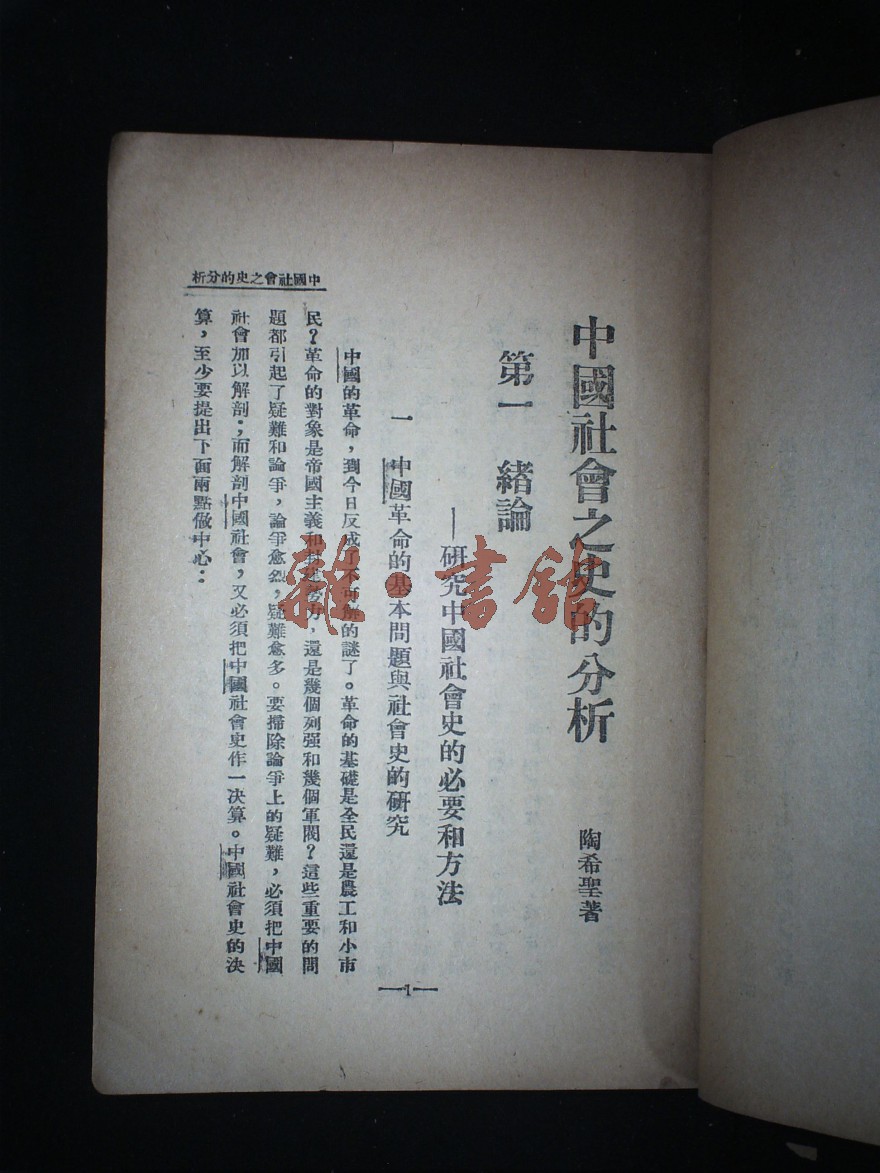 中國社會之史的分析
陶希聖著
第一　緒論
—研究中國社會史的必要和方法
一　中國革命的基本問題與社會史的研究
中國的革命，到今日反成了不可解的謎了。革命的基礎是全民還是農工和小市
民？革命的對象是帝國主義和封建勢力，還是幾個列强和幾個軍閥？這些重要的問
題都引起了疑難和論爭，論爭愈烈，疑難愈多。要掃除論爭上的疑難，必須把中國
社會加以解剖；而解剖中國社會，又必須把中國社會史作一決算。中國社會史的決
算，至少要提出下面兩點做中心：
中國社會之史的分析
—1—
雜·書館